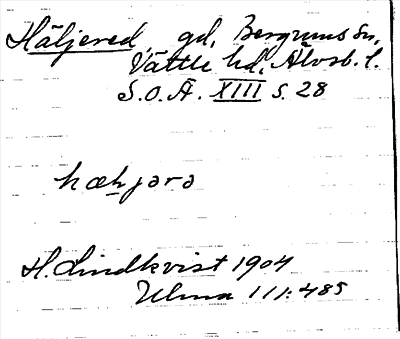 Häljered, gd, Bergums sn,
Vättle hd, Älvsb. l.
S.O.Ä. XIII s. 28
hæhjərə
H. Lindkvist 1904
Ulma 111:485